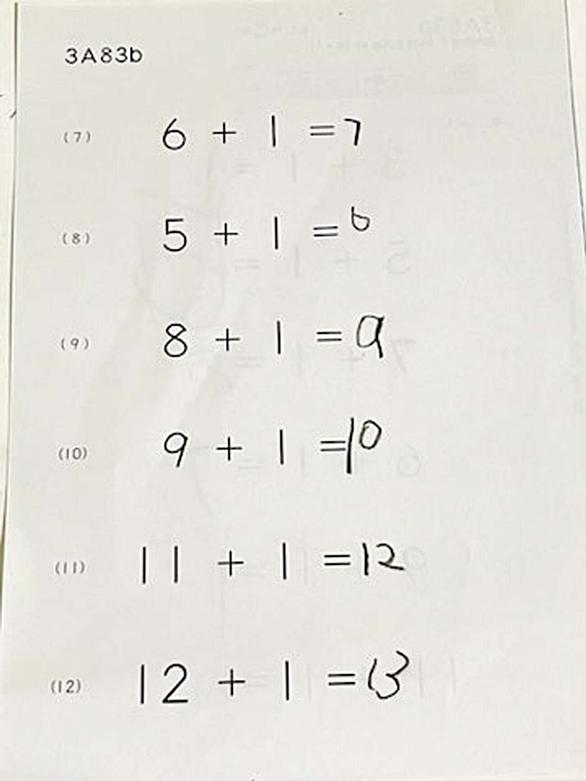 3A83b
(7) 6 + 1 = 7
(8) 5 + 1 = 6
(9) 8 + 1 = 9
(10) 9 + 1 = 10
(11) 11 + 1 = 12
(12) 12 + 1 = 13